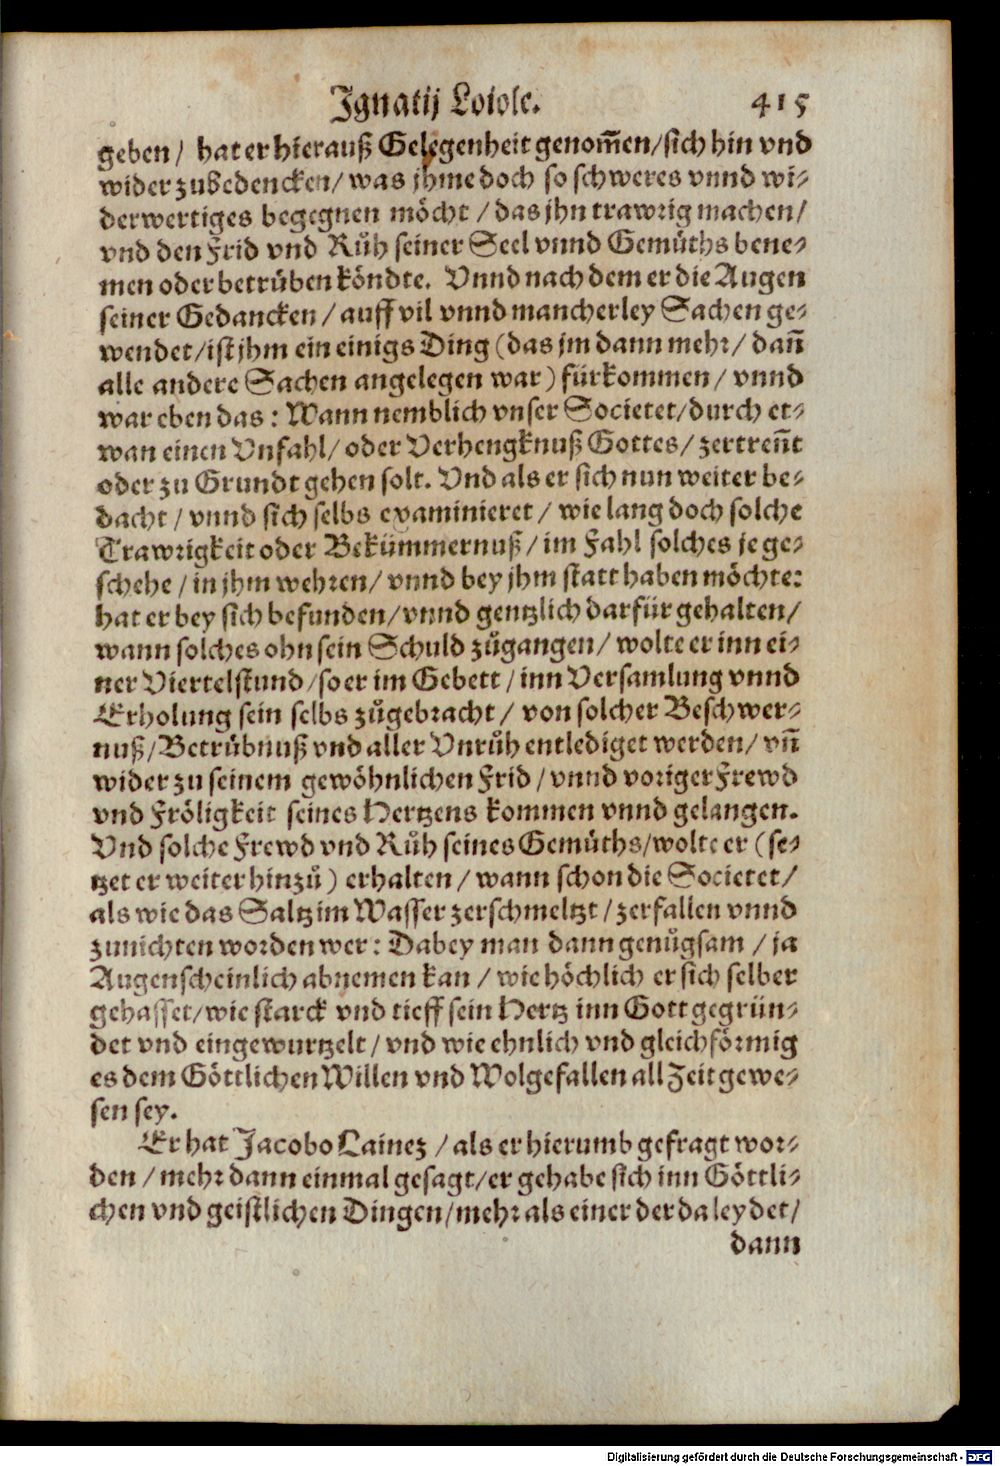 Ignatij Loiole. 415
geben / hat er hierauß Gelegenheit genom̃en/sich hin vnd
wider zubedencken/ was jhme doch so schweres vnnd wi-
derwertiges begegnen möcht / das jhn trawrig machen/
vnd den Frid vnd Růh seiner Seel vnnd Gemüths bene-
men oder betrüben köndte. Vnnd nach dem er die Augen
seiner Gedancken / auff vil vnnd mancherley Sachen ge-
wendet/ist jhm ein einigs Ding (das jm dann mehr/ dañ
alle andere Sachen angelegen war) fürkommen / vnnd
war eben das: Wann nemblich vnser Societet/durch et-
wan einen Vnfahl/ oder Verhengknuß Gottes/ zertreñt
oder zu Grundt gehen solt. Vnd als er sich nun weiter be-
dacht / vnnd sich selbs examinieret / wie lang doch solche
Trawrigkeit oder Bekümmernuß / im Fahl solches je ge-
schehe / in jhm wehren/ vnnd bey jhm statt haben möchte:
hat er bey sich befunden/vnnd gentzlich darfür gehalten/
wann solches ohn sein Schuld zůgangen/ wolte er inn ei-
ner Viertelstund /so er im Gebett / inn Versamlung vnnd
Erholung sein selbs zůgebracht / von solcher Beschwer-
nuß/Betrübnuß vnd aller Vnrůh entlediget werden/ vñ
wider zu seinem gewöhnlichen Frid / vnnd voriger Frewd
vnd Fröligkeit seines Hertzens kommen vnnd gelangen.
Vnd solche Frewd vnd Růh seines Gemüths/wolte er (se-
tzet er weiter hinzů) erhalten / wann schon die Societet/
als wie das Saltz im Wasser zerschmeltzt / zerfallen vnnd
zunichten worden wer: Dabey man dann genůgsam / ja
Augenscheinlich abnemen kan / wie höchlich er sich selber
gehasset/wie starck vnd tieff sein Hertz inn Gott gegrün-
det vnd eingewurtzelt / vnd wie ehnlich vnd gleichförmig
es dem Göttlichen Willen vnd Wolgefallen all Zeit gewe-
sen sey.
Er hat Jacobo Lainez / als er hierumb gefragt wor-
den / mehr dann einmal gesagt/er gehabe sich inn Göttli-
chen vnd geistlichen Dingen/mehr als einer der da leydet/
dann
Digitalisierung gefördert durch die Deutsche Forschungsgemeinschaft - DFG